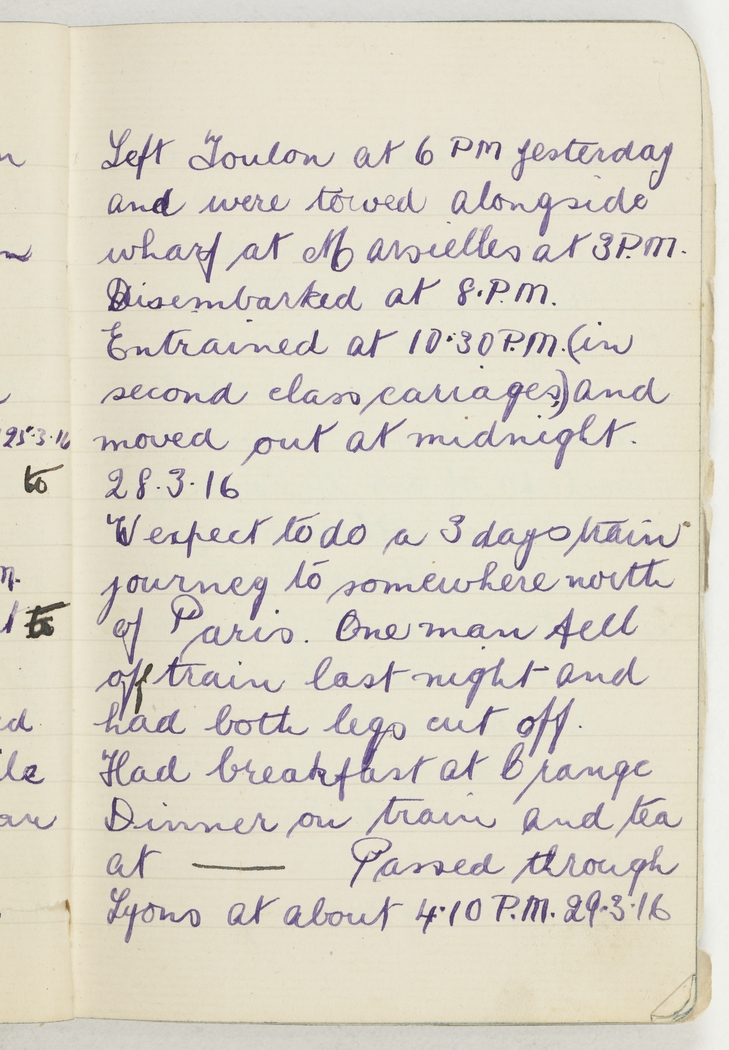 Left Toulon at 6 PM yesterday
and were towed alongside
wharf at Marsielles at 3 P.M.
Disembarked at 8.P.M.
Entrained at 10.30 P.M. (in
second class cariages) and
moved out at midnight.
25.3.16
to
28.3.16
W expect to do a 3 days train
journey to somewhere north
of Paris. One man fell
off train last night and
had both legs cut off.
Had breakfast at Orange
Dinner on train and tea
at —— Passed through
Lyons at about 4.10 P.M. 29.3.16